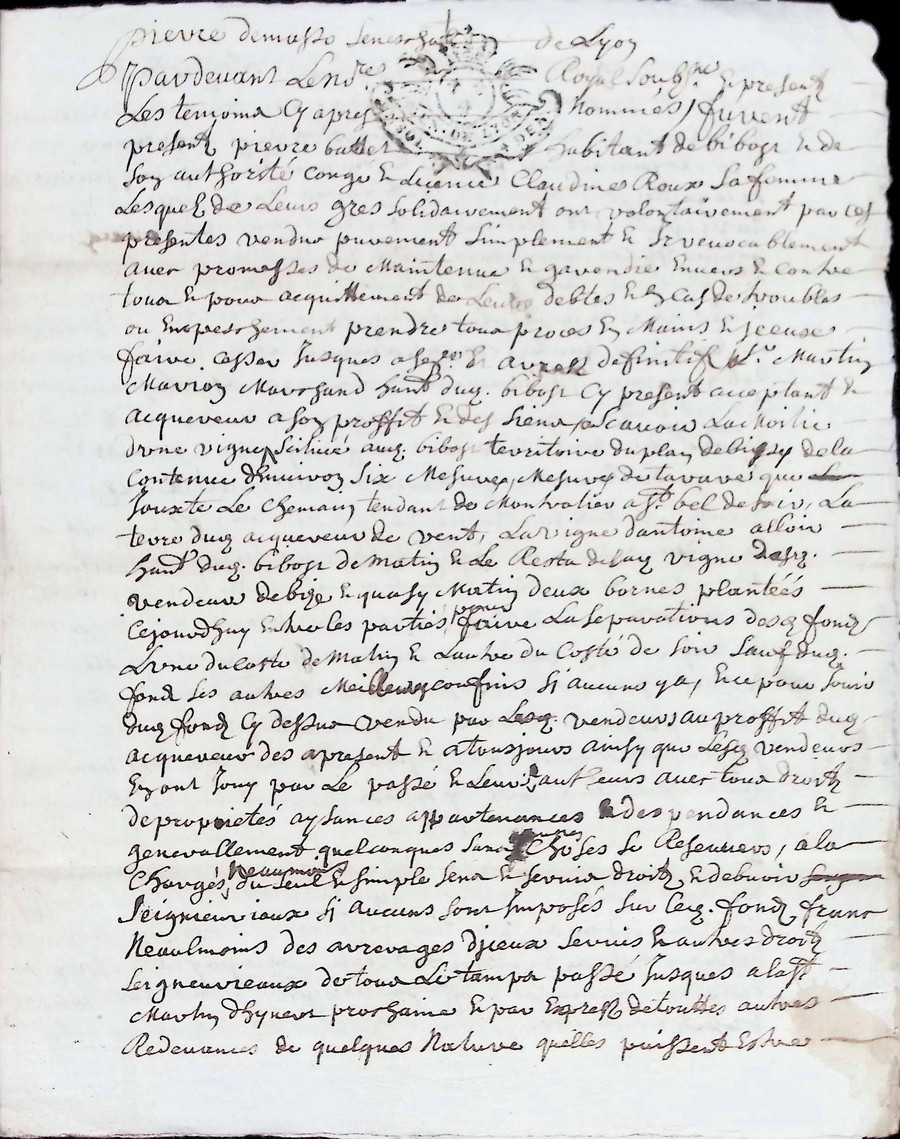 pierre demasso seneschal de Lyon
Pardevant Le no.re Royal soubs.né Et present
Les temoins Cy apres Nommés, furent
present pierre ballet habitant de bibost Et de
son authorité congé Et Licence Claudine Roux sa femme
Lesquels de Leurs gres solidairement ont volontairement par ces
presentes vendus purement simplement Et Irrevocablement
avec promesses de Maintenue Et garendie Envers Et contre
tous Et pour acquittement de Leurs debtes Et En cas de troubles
ou Empeschement prendre tous proces En Mains Et Iceux
faire cesser Jusques a se.ce Et arrest definitif s.r Martin
Marion Marchand hant dud. bibost Cy present acceptant Et
acquereur a son proffit Et des siens, scavoir La Moitié
d'une vigne scituée aud. bibost territoire du plan de la
Contenue d'Environ six Mesures, Mesure de tarare que
Jouxte Le Chemain tendant de Montrotier a st bel de soir, La
terre dud acquereur de vent, La vigne d'antoine
hant dud. bibost de Matin Et Le Reste de lad vigne desd.
vendeurs de bize Et quasy Matin deux bornes plantées
Cejourdhuy Entre les parties pour faire La separations desd fondz
L'une du Coste de Matin Et Lautre du Costé de soir sauf dud.
fond ses autres Meilleurs confins si aucuns y a, Et ce pour Jouir
dud fond Cy dessus vendu par Lesd. vendeurs au proffit dud
acquereur des apresent Et atousjours ainsy que Lesd vendeurs
En ont Jouy par Le passé Et Leurs autheurs avec tous droitz
de propriétés aysances appartenances Et despendances Et
generallement quelconques sans aucunes Choses se Reserver, a la
Charges Neaumoins du seul Et simple sens Et servis droitz Et debvoir
seigneuriaux si aucuns sont Imposés sur led. fond franc
Neaulmoins des arrerages d'jceux servis Et autres droitz
seigneurieaux de tous Le tamps passé Jusques a la st
Martin d'hyvert prochaine Et par Expres de touttes autres
Redevances de quelques Nature quelles puissent Estre